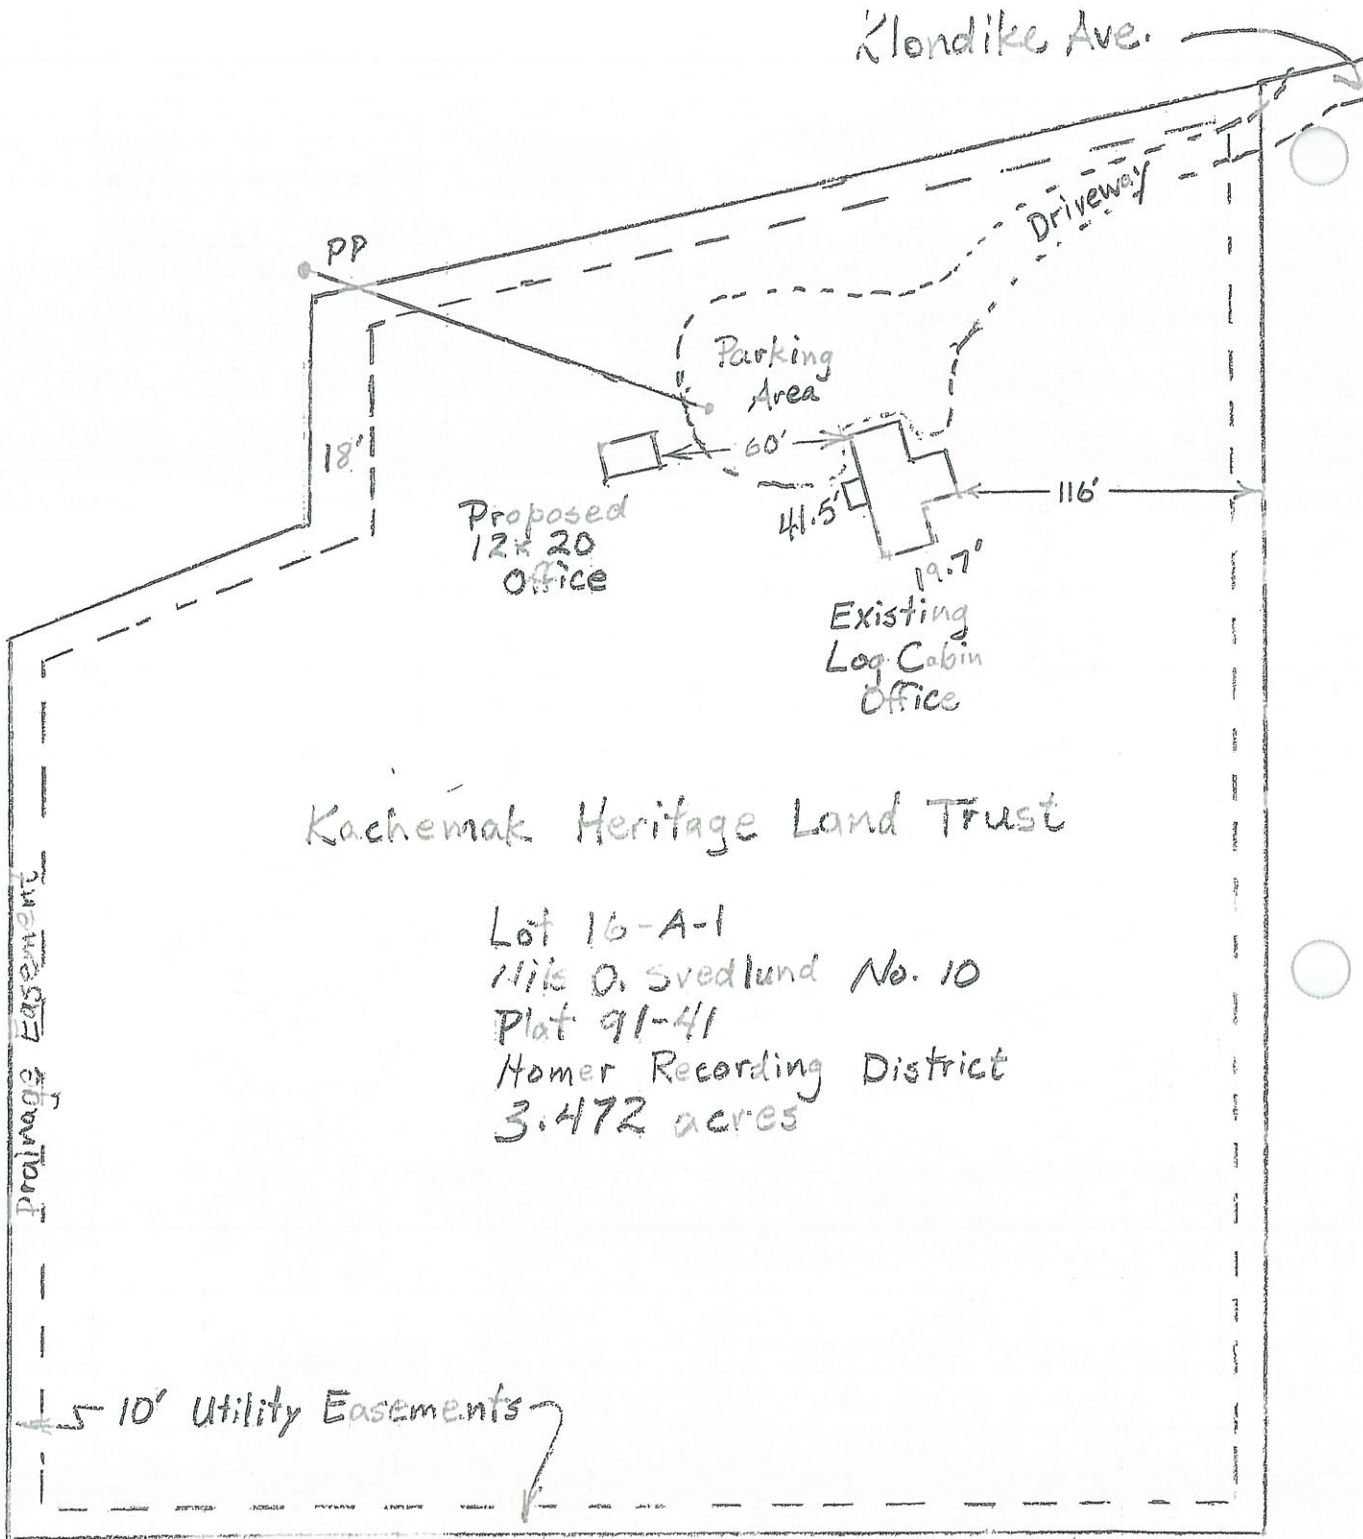 Klondike Ave.
PP
Driveway
Parking
Area
18'
60'
116'
41.5'
19.7'
Proposed
12 x 20
Office
Existing
Log Cabin
Office
Kachemak Heritage Land Trust
Lot 16-A-1
Nils O. Svedlund No. 10
Plat 91-41
Homer Recording District
3.472 acres
Drainage Easement
10' Utility Easements